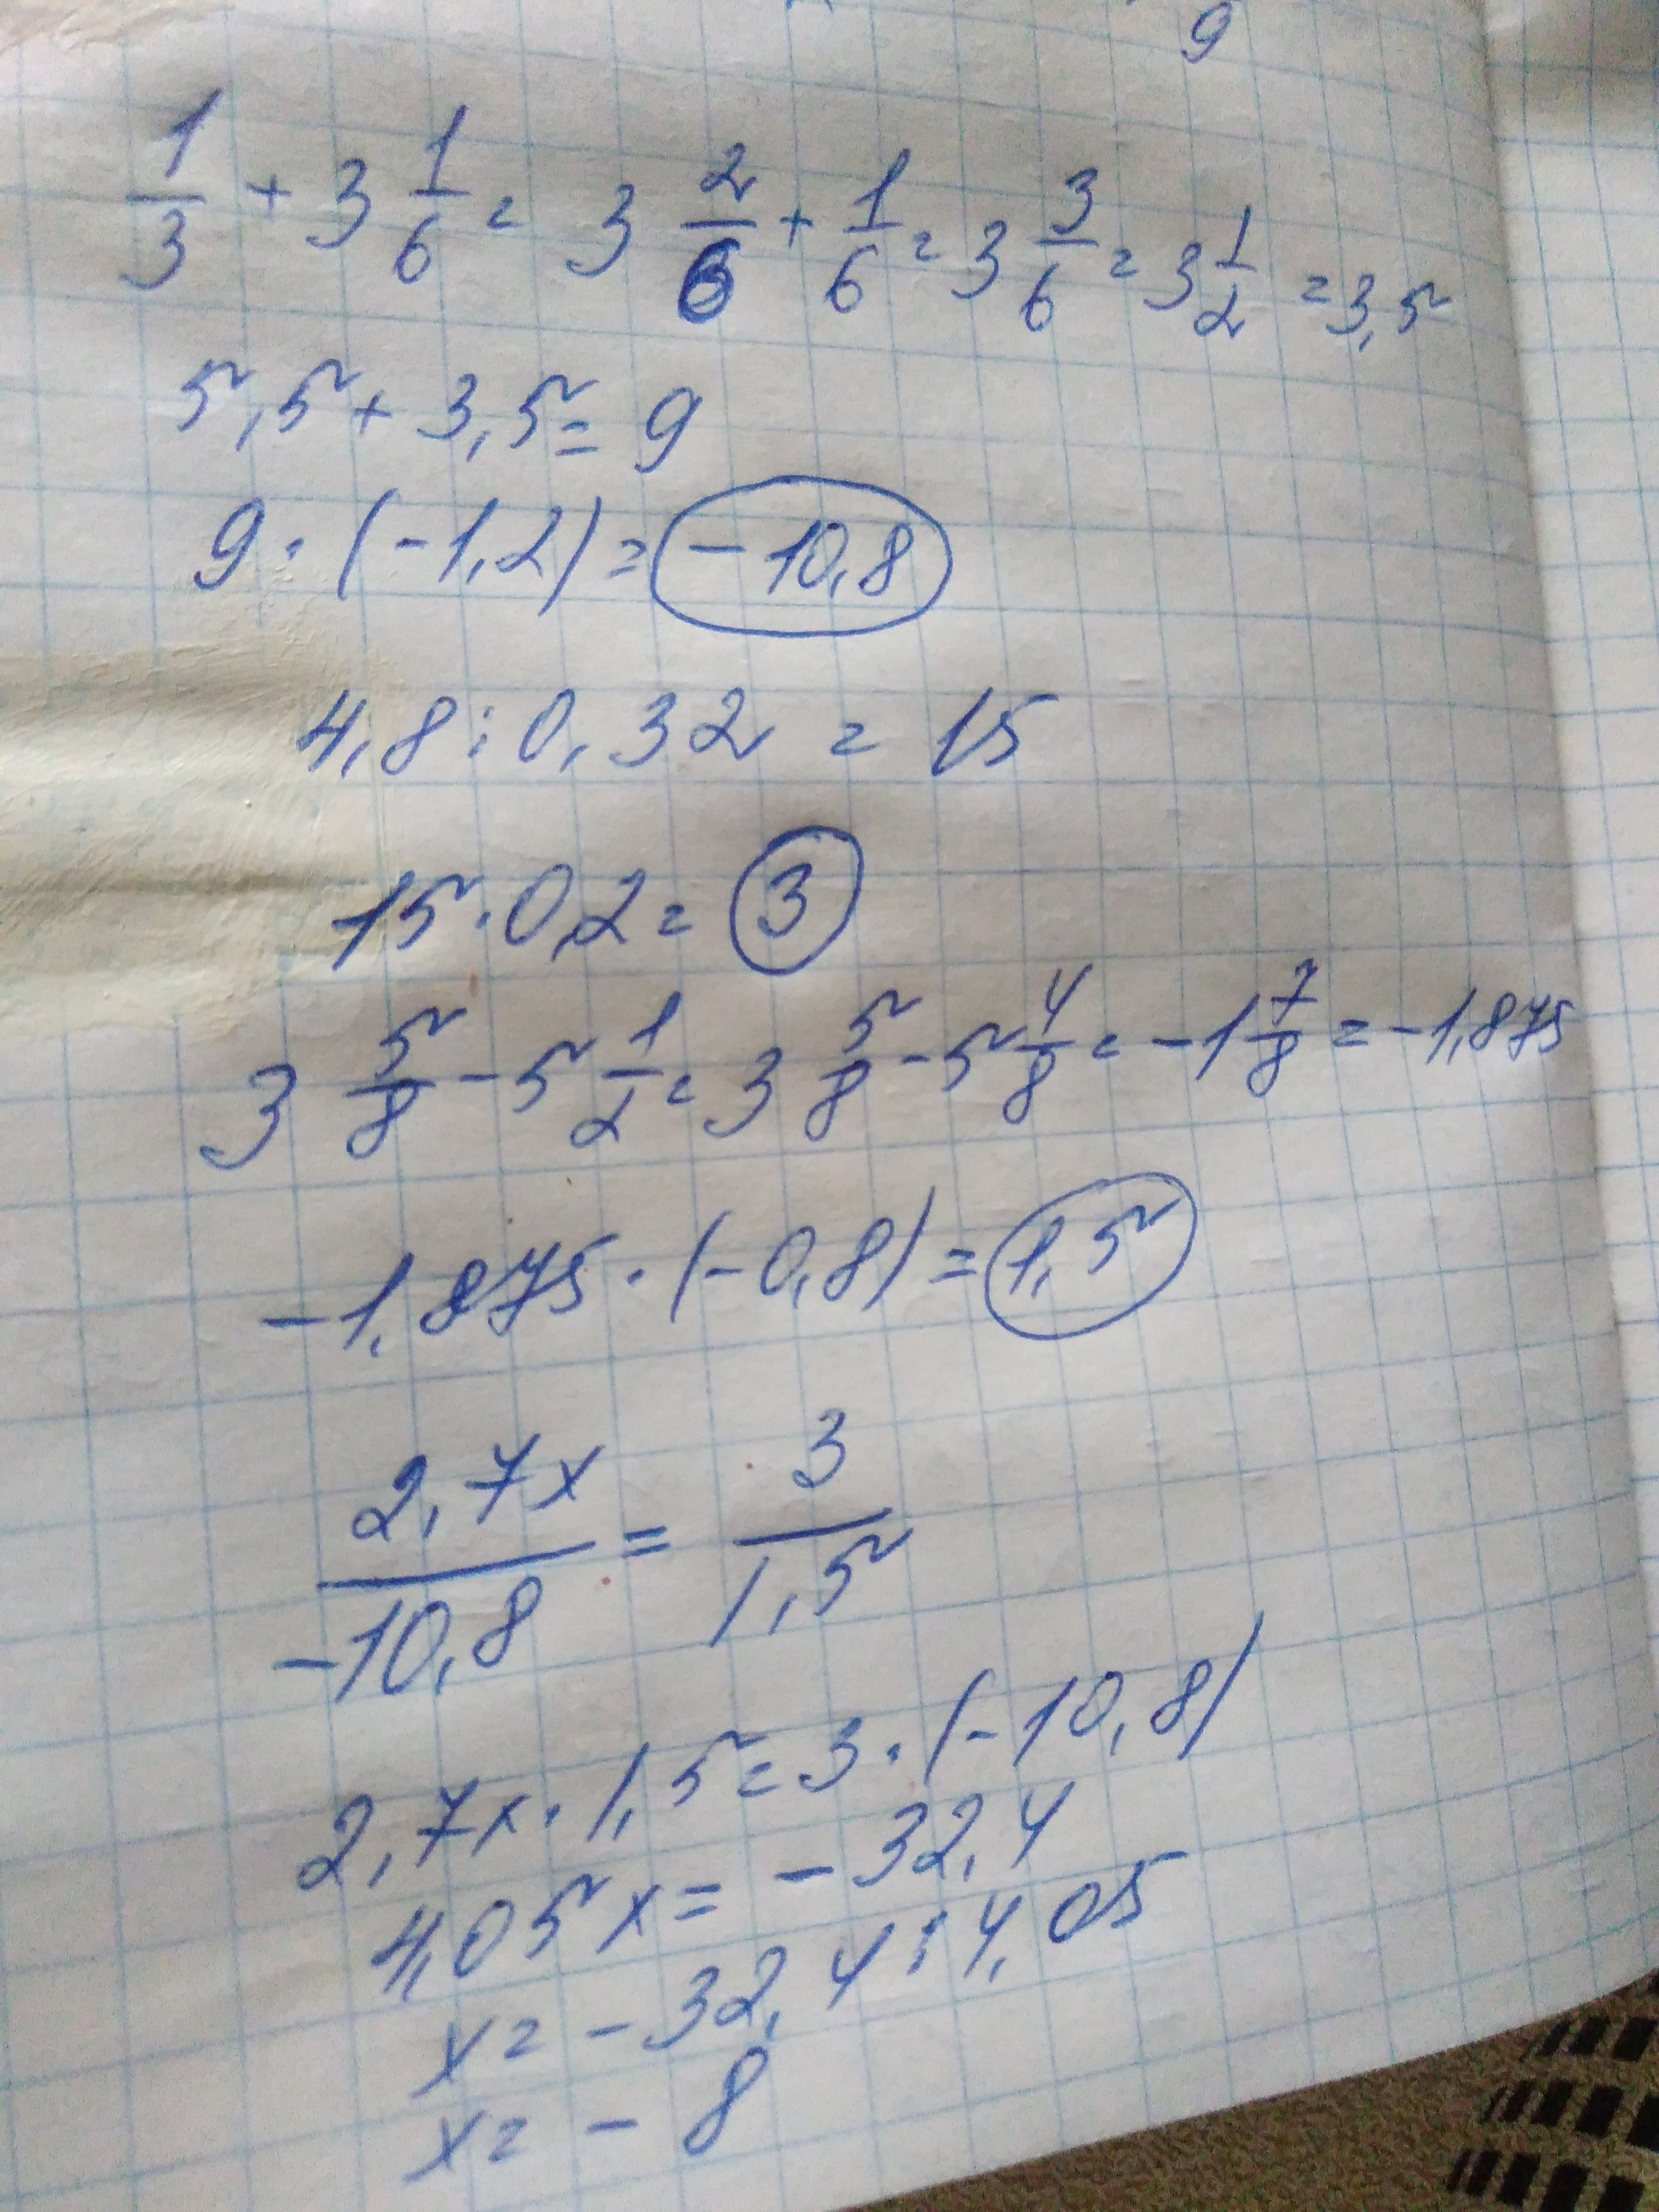 9
1/3 + 3 1/6 = 3 2/6 + 1/6 = 3 3/6 = 3 1/2 = 3,5
5,5 + 3,5 = 9
9 · (-1,2) = -10,8
4,8 : 0,32 = 15
15 · 0,2 = 3
3 5/8 - 5 1/2 = 3 5/8 - 5 4/8 = -1 7/8 = -1,875
-1,875 · (-0,8) = 1,5
2,7x/-10,8 = 3/1,5
2,7x · 1,5 = 3 · (-10,8)
4,05x = -32,4
x = -32,4 : 4,05
x = -8